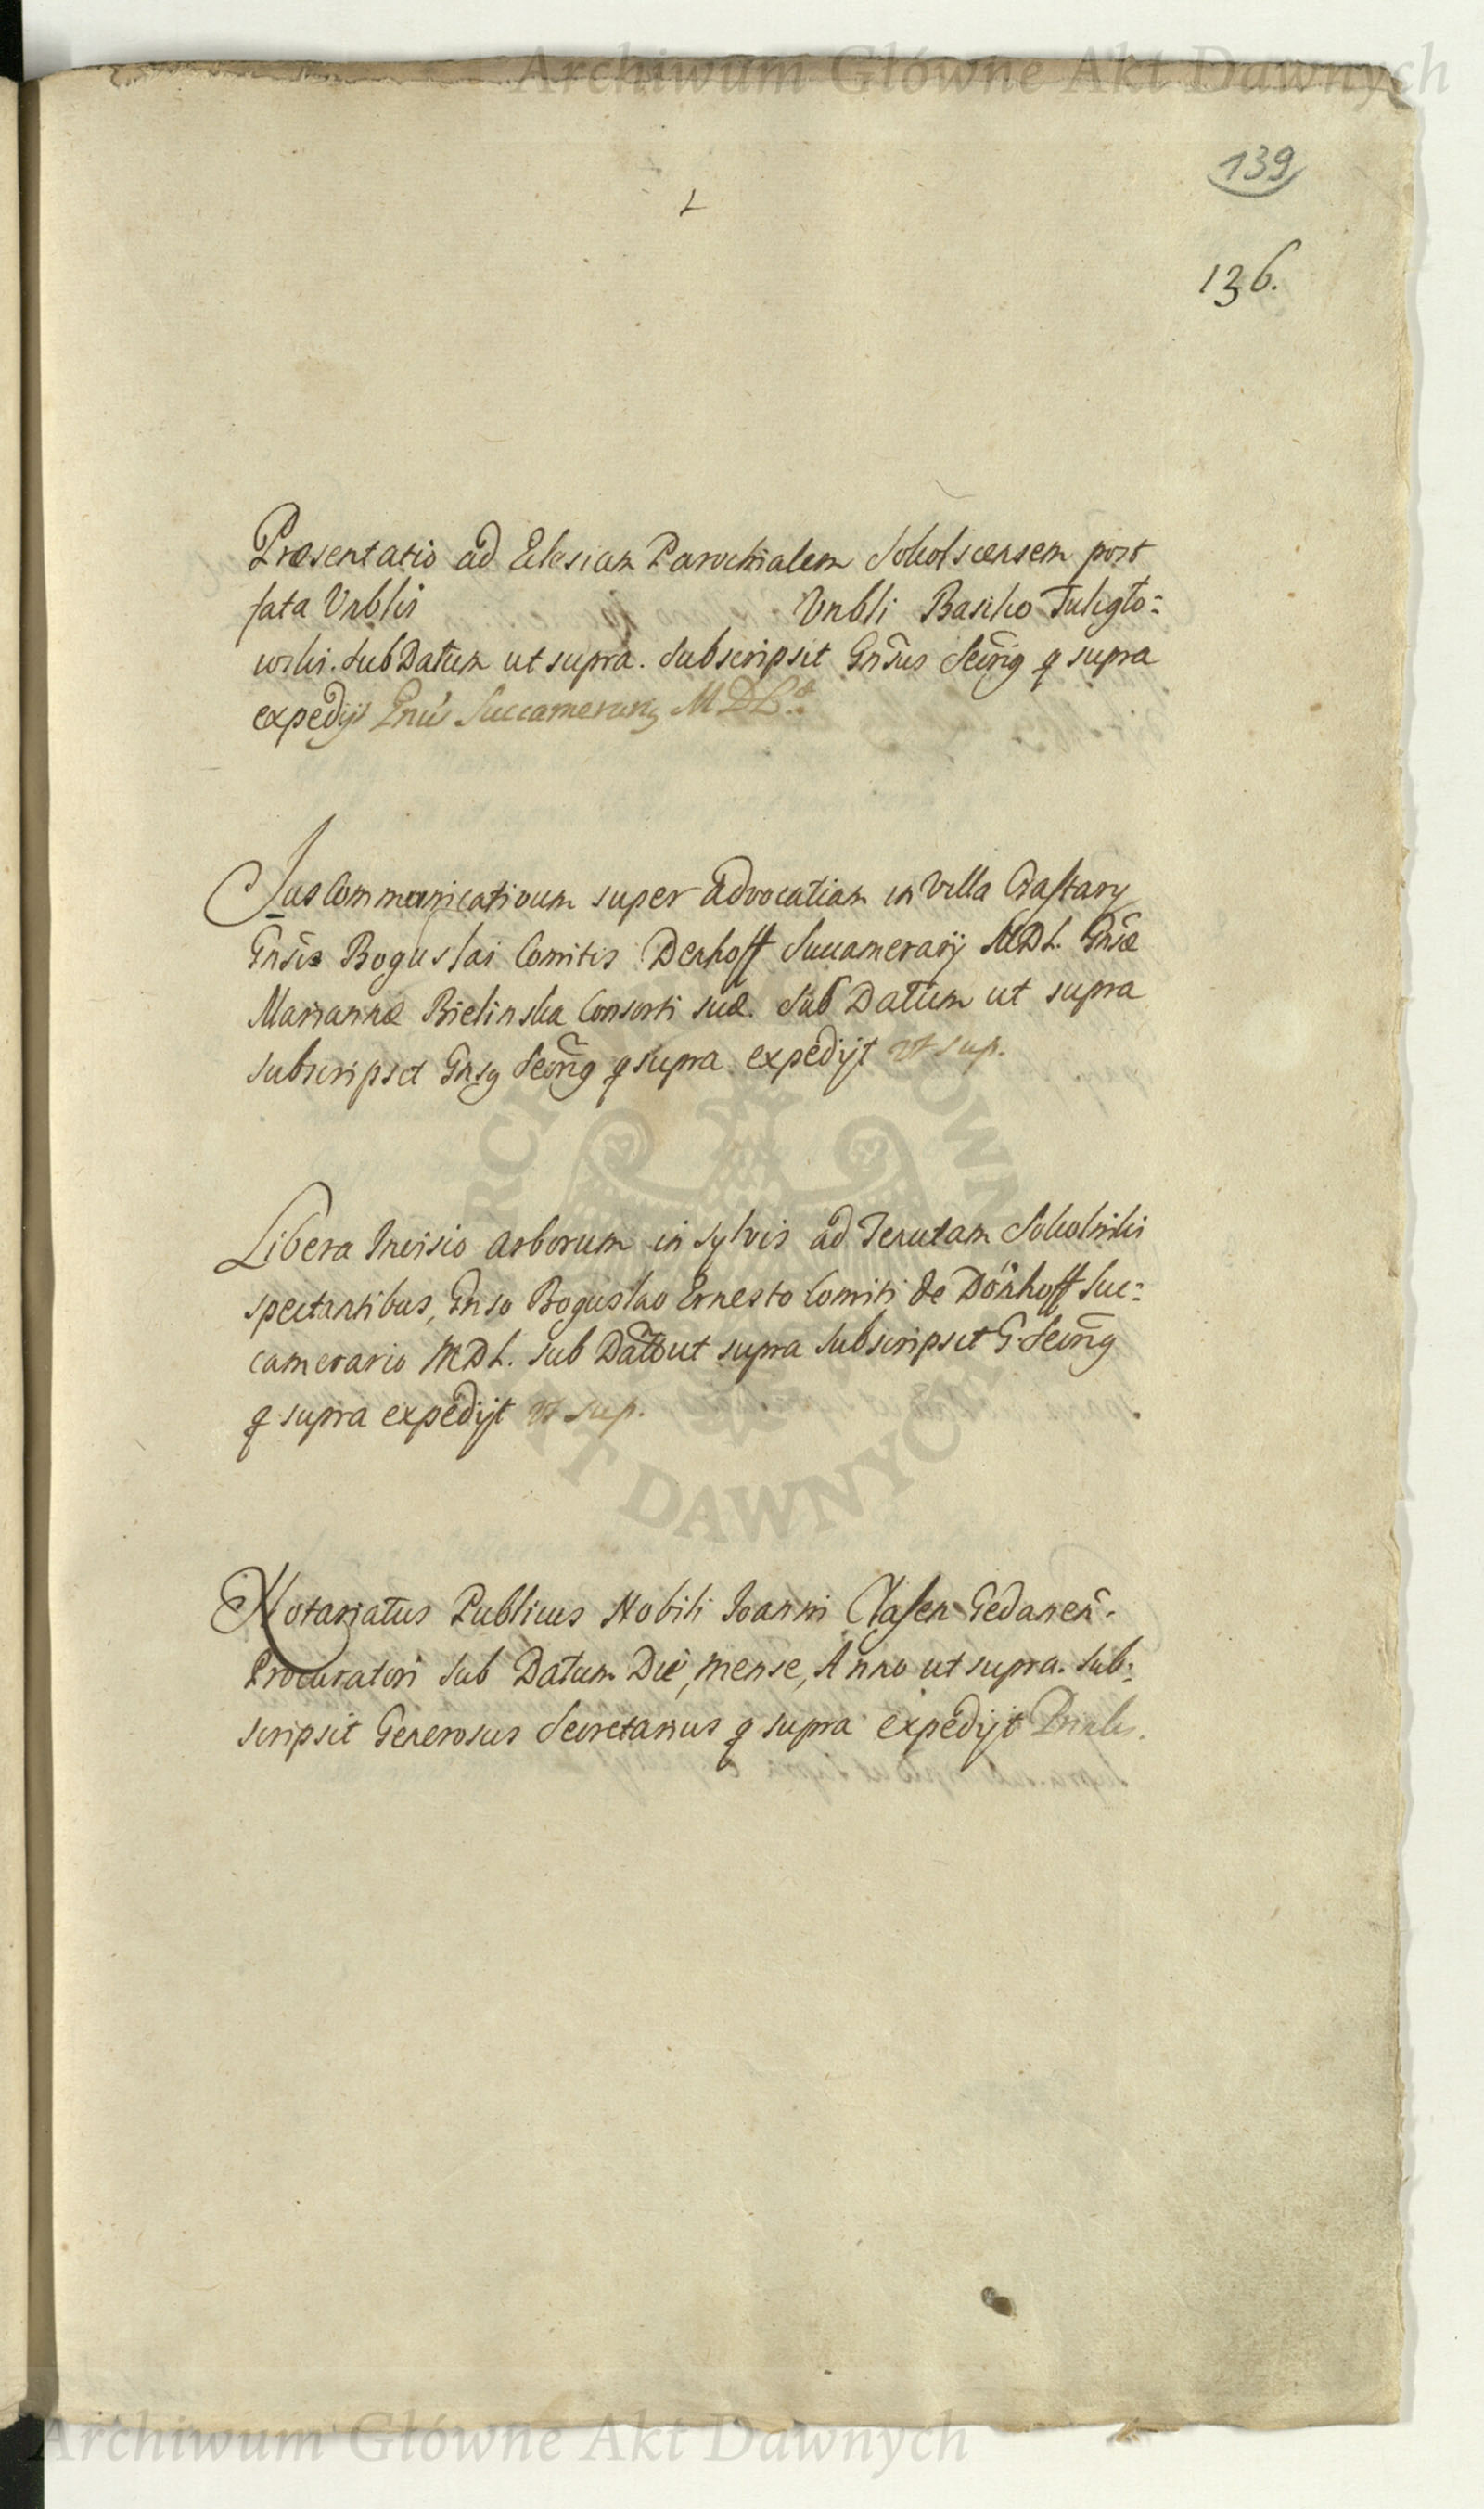 Archiwum Główne Akt Dawnych
139
136.
Præsentatio ad Eclesiam Parochialem post
fata Vrblis Vrbli Basilio Tuligło=
wski. Sub Datum ut supra. Subscripsit Gnsus Secrig q supra
expedijt Succamerarig MDL.
Jus Communicativum super Advocatiam in Villa Czastary
Gnsis Boguslai Comitis Denhoff Succamerarij MDL. Gnsæ
Mariannæ Bielinska Consorti suæ. Sub Datum ut supra
subscripsit Gnsg Secrig q supra expedijt ut sup.
Libera Incisio Arborum in sylvis ad Tenutam Sokolniki
spectantibus, Gnso Boguslao Ernesto Comiti de Dönhoff Suc=
camerario MDL. Sub Datto ut supra Subscripsit G Secrig
q supra expedijt ut sup.
Notariatus Publicus Nobili Joanni Clasen Gedanen.
Procuratori Sub Datum Die, mense, Anno ut supra. Sub=
scripsit Generosus Secretarius q supra expedijt
ARCH GŁÓWN
AKT DAWNYCH
Archiwum Główne Akt Dawnych